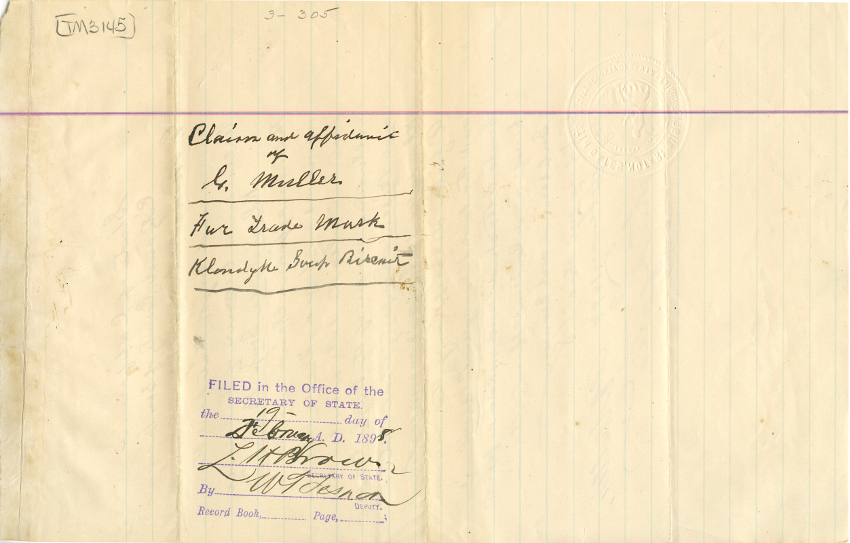 [TM3145]
3-305
Claim and affidavit
of
G. Muller
For Trade Mark
Klondyke Soup Biscuit
FILED in the Office of the
SECRETARY OF STATE,
the 19 day of
February A. D. 1898.
L. H. Brown
SECRETARY OF STATE.
By
DEPUTY.
Record Book, Page, ;